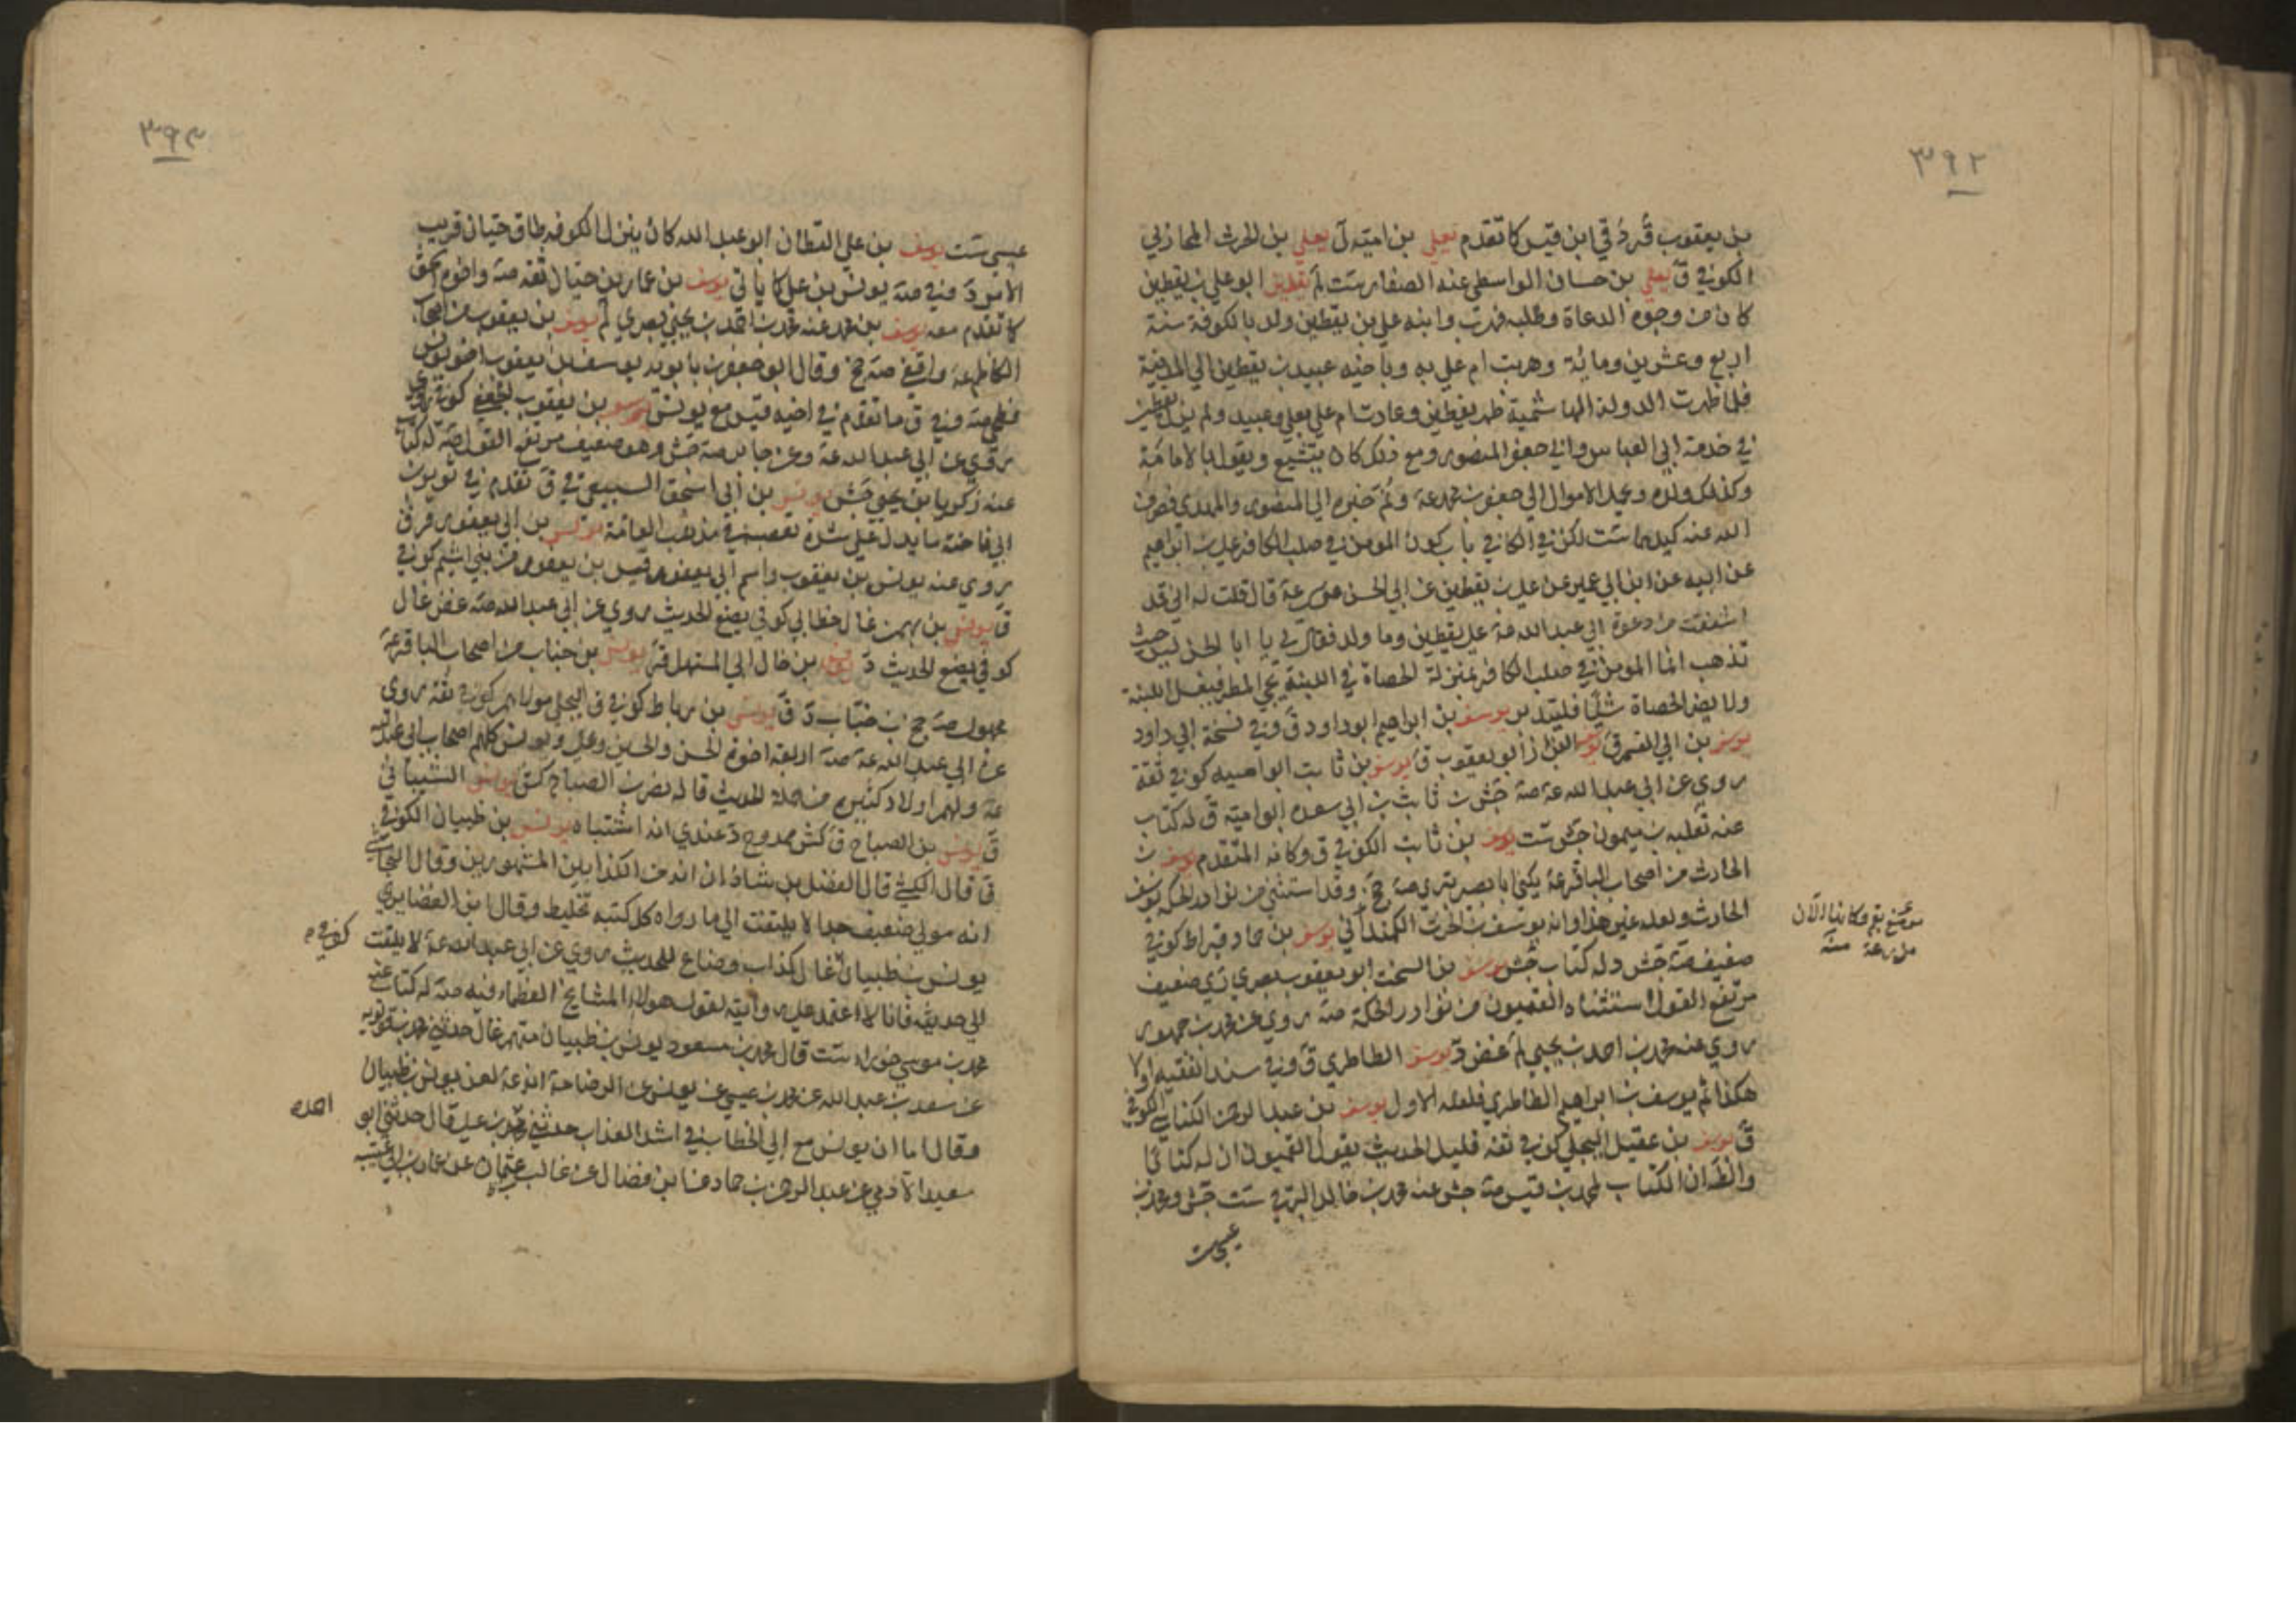 ٣٩٢
بن يعقوب قر دُ في ابن قيس كما تقدم يعلي بن امية ل يعلي بن الحرث المحاربي
الكوفي ق يعلي بن حسان الواسطي عنه الصفار ست لم يقطين ابو علي بن يقطين
كان من وجوه الدعاة وطلبه فهرب وابنه علي بن يقطين ولد بالكوفة سنة
اربع وعشرين ومائة وهربت ام علي به وباخيه عبيد بن يقطين الي المدينة
فلما ظهرت الدولة الهاشمية ظهر يقطين وعادت ام علي بعلي وعبيد ولم يزل يقطين
في خدمة ابي العباس وابي جعفر المنصور ومع ذلك كان يتشيع ويقول بالامامة
وكذلك ولده ويحمل الاموال الي جعفر بن محمد عه ونُم خبره الي المنصور والمهدي فصرف
الله عنه كيدهما ست لكن في الكافي باب كون المؤمن في صلب الكافر علي بن ابراهيم
عن ابيه عن ابن ابي عمير عن علي بن يقطين عن ابي الحسن موسي عه قال قلت له اني قد
اشفقت من دعوة ابي عبد الله عه علي يقطين وما ولد فقال لي يا ابا الحسن ليس حيث
تذهب انما المؤمن في صلب الكافر بمنزلة الحصاة في اللبنة يجي المطر فيغسل اللبنة
ولا يضر الحصاة شيئا فليتدبر يوسف بن ابراهيم ابو داود ق وفي نسخة ابي داود
يوسف بن ابي القسم ق البزاز ابو يعقوب ق يوسف بن ثابت ابو امية كوفي ثقة
روي عن ابي عبد الله عه صه جش بن ثابت بن ابي سعده ابو امية ق له كتاب
عنه ثعلبة بن ميمون جش ست يوسف بن ثابت الكوفي ق وكانه المتقدم يوسف بن
الحارث من اصحاب الباقر عه يكني ابا بصير بتري صه جج وقد استثني من نوادر الحكمة يوسف
الحارث ولعله غير هذا وانه يوسف بن الحرث الكمنداني يوسف بن حماد قيراط كوفي
ضعيف صه جش وله كتاب جش يوسف بن السخت ابو يعقوب بصري ري ضعيف
مرتفع القول استثناه القميون من نوادر الحكمة صه روي عن محمد بن جمهور
روي عنه محمد بن احمد بن يحيي لم غض دّ يوسف الطاطري ق وفي سند الفقيه اولا
هكذا ثم يوسف بن ابراهيم الطاطري فلعله الاول يوسف بن عبد الرحمن الكناسي الكوفي
ق يوسف بن عقيل البجلي كوفي ثقة قليل الحديث يقول القميون ان له كتابا
والظان الكتاب لمحمد بن قيس صه جش عنه محمد بن خالد البرقي ست جش ومحمد بن
عيسي ست
موضع بقم وكانها الآن
مزرعة منه
٣٩٣
عيسي ست يوسف بن علي القطان ابو عبد الله كان ينزل الكوفة طاق حيان قريب
الامر دّ وفي صه يونس بن علي كما ياتي يوسف بن عمار بن حيان ثقة صه واخوه اسحق
كما تقدم معه يوسف بن محمد عنه محمد بن احمد بن يحيي بصري لم يوسف بن يعقوب من اصحاب
الكاظم عه واقفي صه جج وقال ابو جعفر بن بابويه يوسف بن يعقوب اخو يونس
فطحي صه وفي ق ما تقدم في اخيه قيس مع يونس يوسف بن يعقوب الجعفي كوفي روي
عن ابي عبد الله عه وعن جابر صه جش وهو ضعيف مرتفع القول صه له كتاب
عنه زكريا بن يحيي جش يونس بن ابي اسحق السبيعي في ق تقدم في ثوير بن
ابي فاختة ما يدل علي شدة تعصبه في مذهب العامة يونس بن ابي يعفور قر ق
روي عنه يونس بن يعقوب واسم ابي يعفور قيس بن يعفور من بني اشيم كوفي
ق يونس بن بهمن غال خطابي كوفي يضع الحديث روي عن ابي عبد الله صه غض غال
كوفي يضع الحديث دّ يونس بن خال ابي المستهل ق يونس بن خباب من اصحاب الباقر عه
مجهول صه جج بن خباب دّ ق يونس بن رباط كوفي ق البجلي مولاهم كوفي ثقة روي
عن ابي عبد الله عه صه اربعة اخوة الحسن والحسين وعلي ويونس كلهم اصحاب ابي عبد الله
عه ولهم اولاد كثيرة من حملة الحديث قاله نصر بن الصباح كش يونس الشيباني
ق يونس بن الصباح ق كش ممدوح دّ عندي انه اشتباه يونس بن ظبيان الكوفي
ق قال الكشي قال الفضل بن شاذان انه من الكذابين المشهورين وقال النجاشي
انه مولي ضعيف جدا لا يلتفت الي ما رواه كل كتبه تخليط وقال ابن الغضايري
يونس بن ظبيان غال كذاب وضاع للحديث روي عن ابي عبد الله عه لا يلتفت
الي حديثه فانا لا اعتمد علي روايته لقول هولاء المشايخ العظماء فيه صه له كتاب عنه
محمد بن موسي خوراء ست قال محمد بن مسعود يونس بن ظبيان متهم غال حدثني محمد بن قولويه
عن سعد بن عبد الله عن محمد بن عيسي عن يونس عن الرضا عه انه عه لعن يونس بن ظبيان
وقال اما ان يونس مع ابي الخطاب في اشد العذاب حدثني محمد بن علي قال حدثني ابو
سعيد الآدمي عن عبد الرحمن بن حماد عن ابن فضال عن غالب بن عثمان عن عمار بن ابي عتيبه
كوفي م
احمد